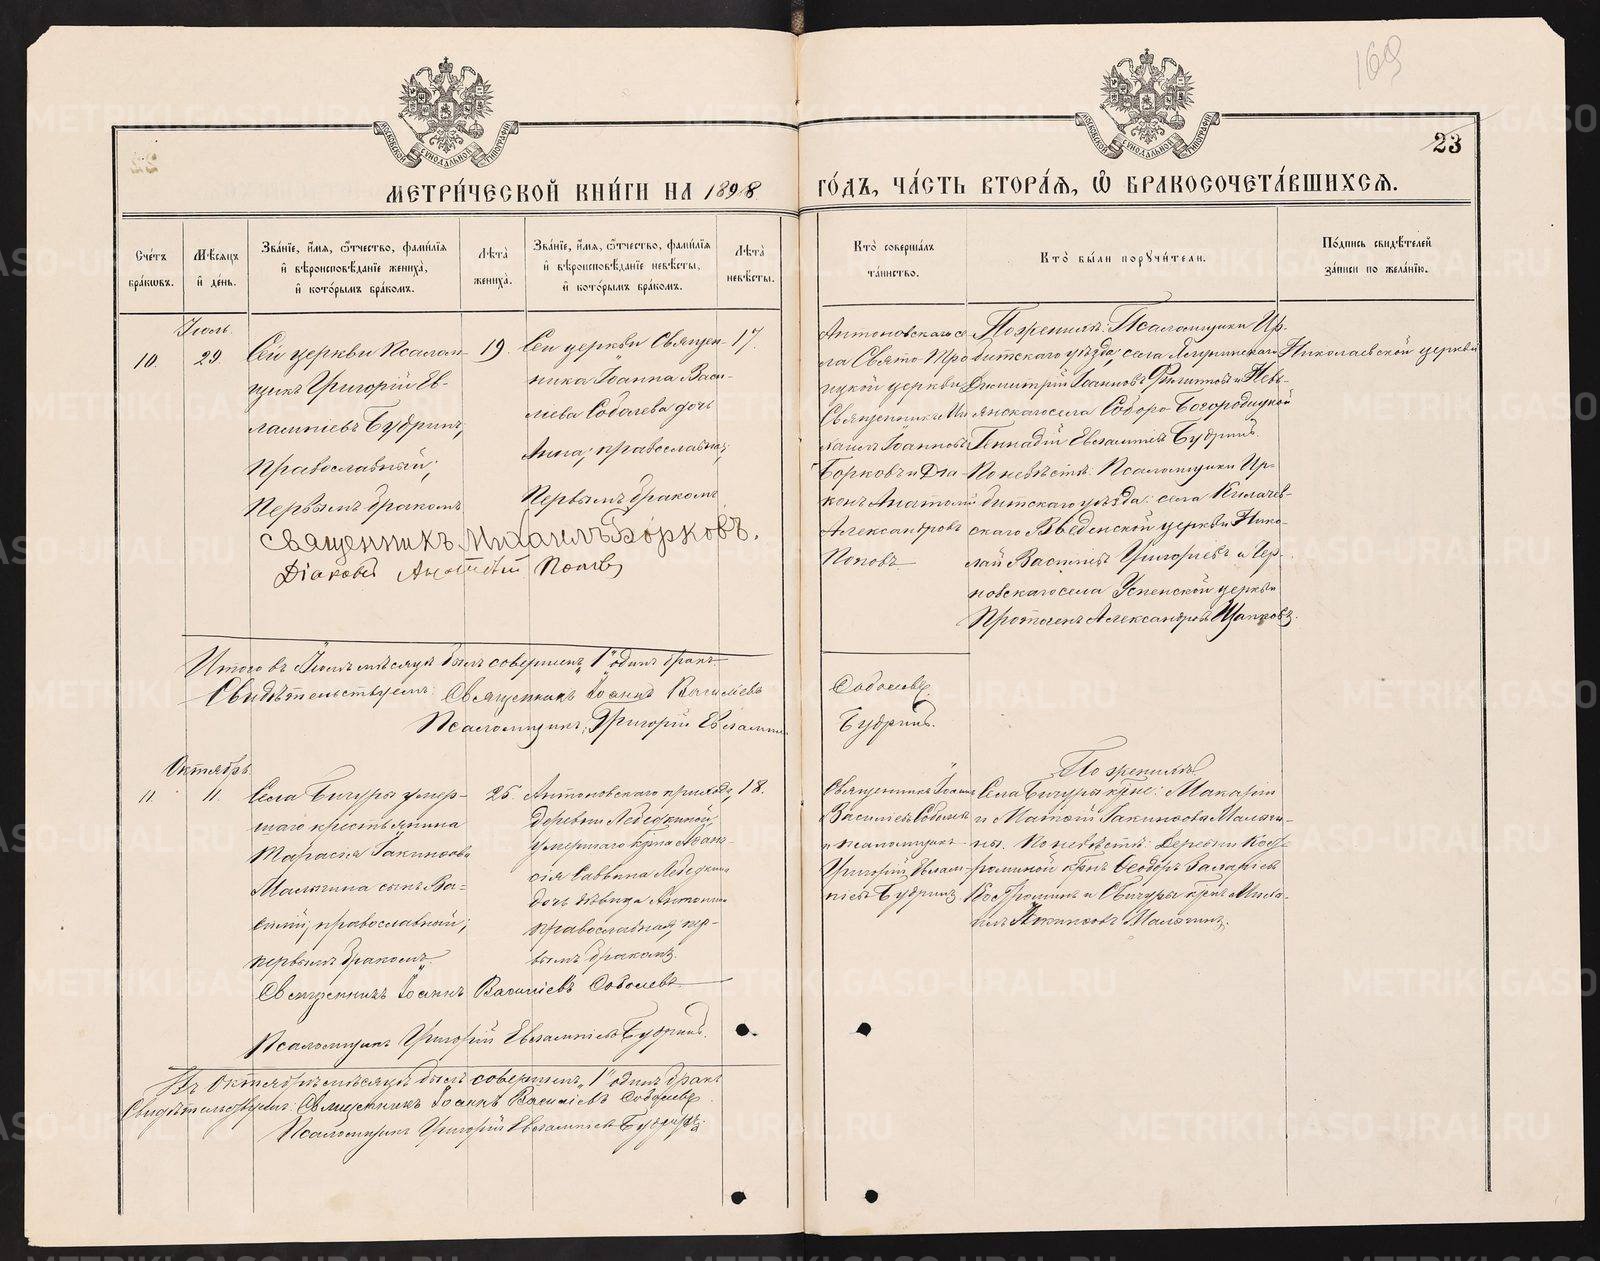 169
23
МЕТРИ́ЧЕСКОЙ КНИ́ГИ НА 1898 ГО́ДЪ, ЧА́СТЬ ВТОРА́Я, Ѽ БРАКОСОЧЕТА́ВШИХСЯ.
Сче́тъ бра́ковъ.
Мѣ́сяцъ и де́нь.
Зва́ніе, и́мя, ѻ҆́тчество, фами́лія и вѣроисповѣ́даніе жениха̀, и кото́рымъ бра́комъ.
Лѣта̀ жениха̀.
Зва́ніе, и́мя, ѻ҆́тчество, фами́лія и вѣроисповѣ́даніе невѣ́сты, и кото́рымъ бра́комъ.
Лѣта̀ невѣ́сты.
Кто̀ соверша́лъ та́инство.
Кто̀ бы́ли поручи́тели.
По́дпись свидѣ́телей за́писи по жела́нію.
Іюль.
10.
29.
Сей церкви Псалом-
щикъ Григорій Ев-
лампіевъ Будринъ,
православный;
Первымъ бракомъ
19.
Сей церкви Священ-
ника Іоанна Васи-
льева Соболева дочь
Анна, православная;
Первымъ бракомъ
17.
Антоновскаго се-
ла Свято-Тро-
ицкой церкви
Священникъ Ми-
хаилъ Іоанновъ
Борковъ и Діа-
конъ Анатолій
Александровъ
Поповъ
По женихѣ: Псаломщики Ир-
битскаго уѣзда, села
Николаевской церкви
Димитрій Іоанновъ и Невь-
янскаго села Соборо-Богородицкой
Геннадій Евлампіевъ Будринъ.
По невѣстѣ: Псаломщики Ир-
битскаго уѣзда: села Килачев-
скаго Введенской церкви Нико-
лай Васильевъ Григорьевъ и Чер-
новскаго села Успенской церкви
Александровъ
Священникъ Михаилъ Борковъ.
Діаконъ Анатолій Поповъ
Итого въ Іюлѣ мѣсяцѣ былъ совершенъ „1" одинъ бракъ
Свидѣтельствуемъ: Священникъ Іоаннъ Васильевъ
Соболевъ.
Псаломщикъ Григорій Евлампіевъ
Будринъ.
Октябрь
11.
11.
Села Бичуры умер-
шаго крестьянина
Тарасія Іакинфова
Малыгина сынъ Ва-
силій, православный;
первымъ бракомъ
25.
Антоновскаго прихода,
деревни Лебедкиной,
умершаго кр-на
Саввина Лебедкина
дочь дѣвица Антонина
православная, пер-
вымъ бракомъ.
18.
Священникъ Іоаннъ
Васильевъ Соболевъ
и псаломщикъ
Григорій Евлам-
піевъ Будринъ.
По женихѣ
Села Бичуры кр-не: Макарій
и Матѳій Іакинфовы Малыги-
ны. По невѣстѣ: Деревни Кост-
роминой кр-нъ Ѳеодоръ Захаріевъ
Костроминъ и с. Бичуры кр-нъ Миха-
илъ Малыгинъ.
Священникъ Іоаннъ Васильевъ Соболевъ
Псаломщикъ Григорій Евлампіевъ Будринъ.
Въ Октябрѣ мѣсяцѣ былъ совершенъ „1" одинъ бракъ
Свидѣтельствуемъ: Священникъ Іоаннъ Васильевъ Соболевъ
Псаломщикъ Григорій Евлампіевъ Будринъ.
METRIKI.GASO-URAL.RU